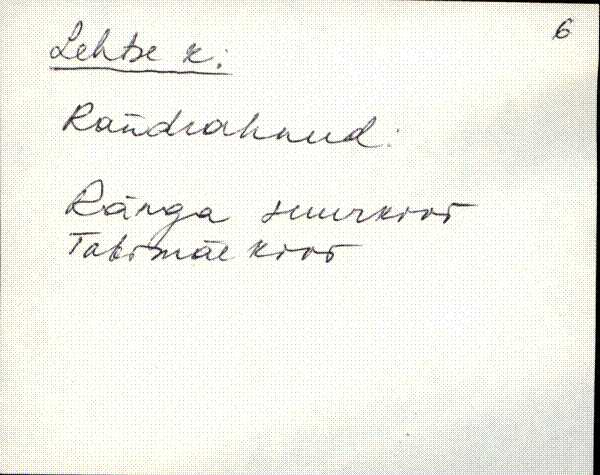 6
Lehtse k:
Rändrahnud:
Ränga suurkivi
Tabimäe kivi